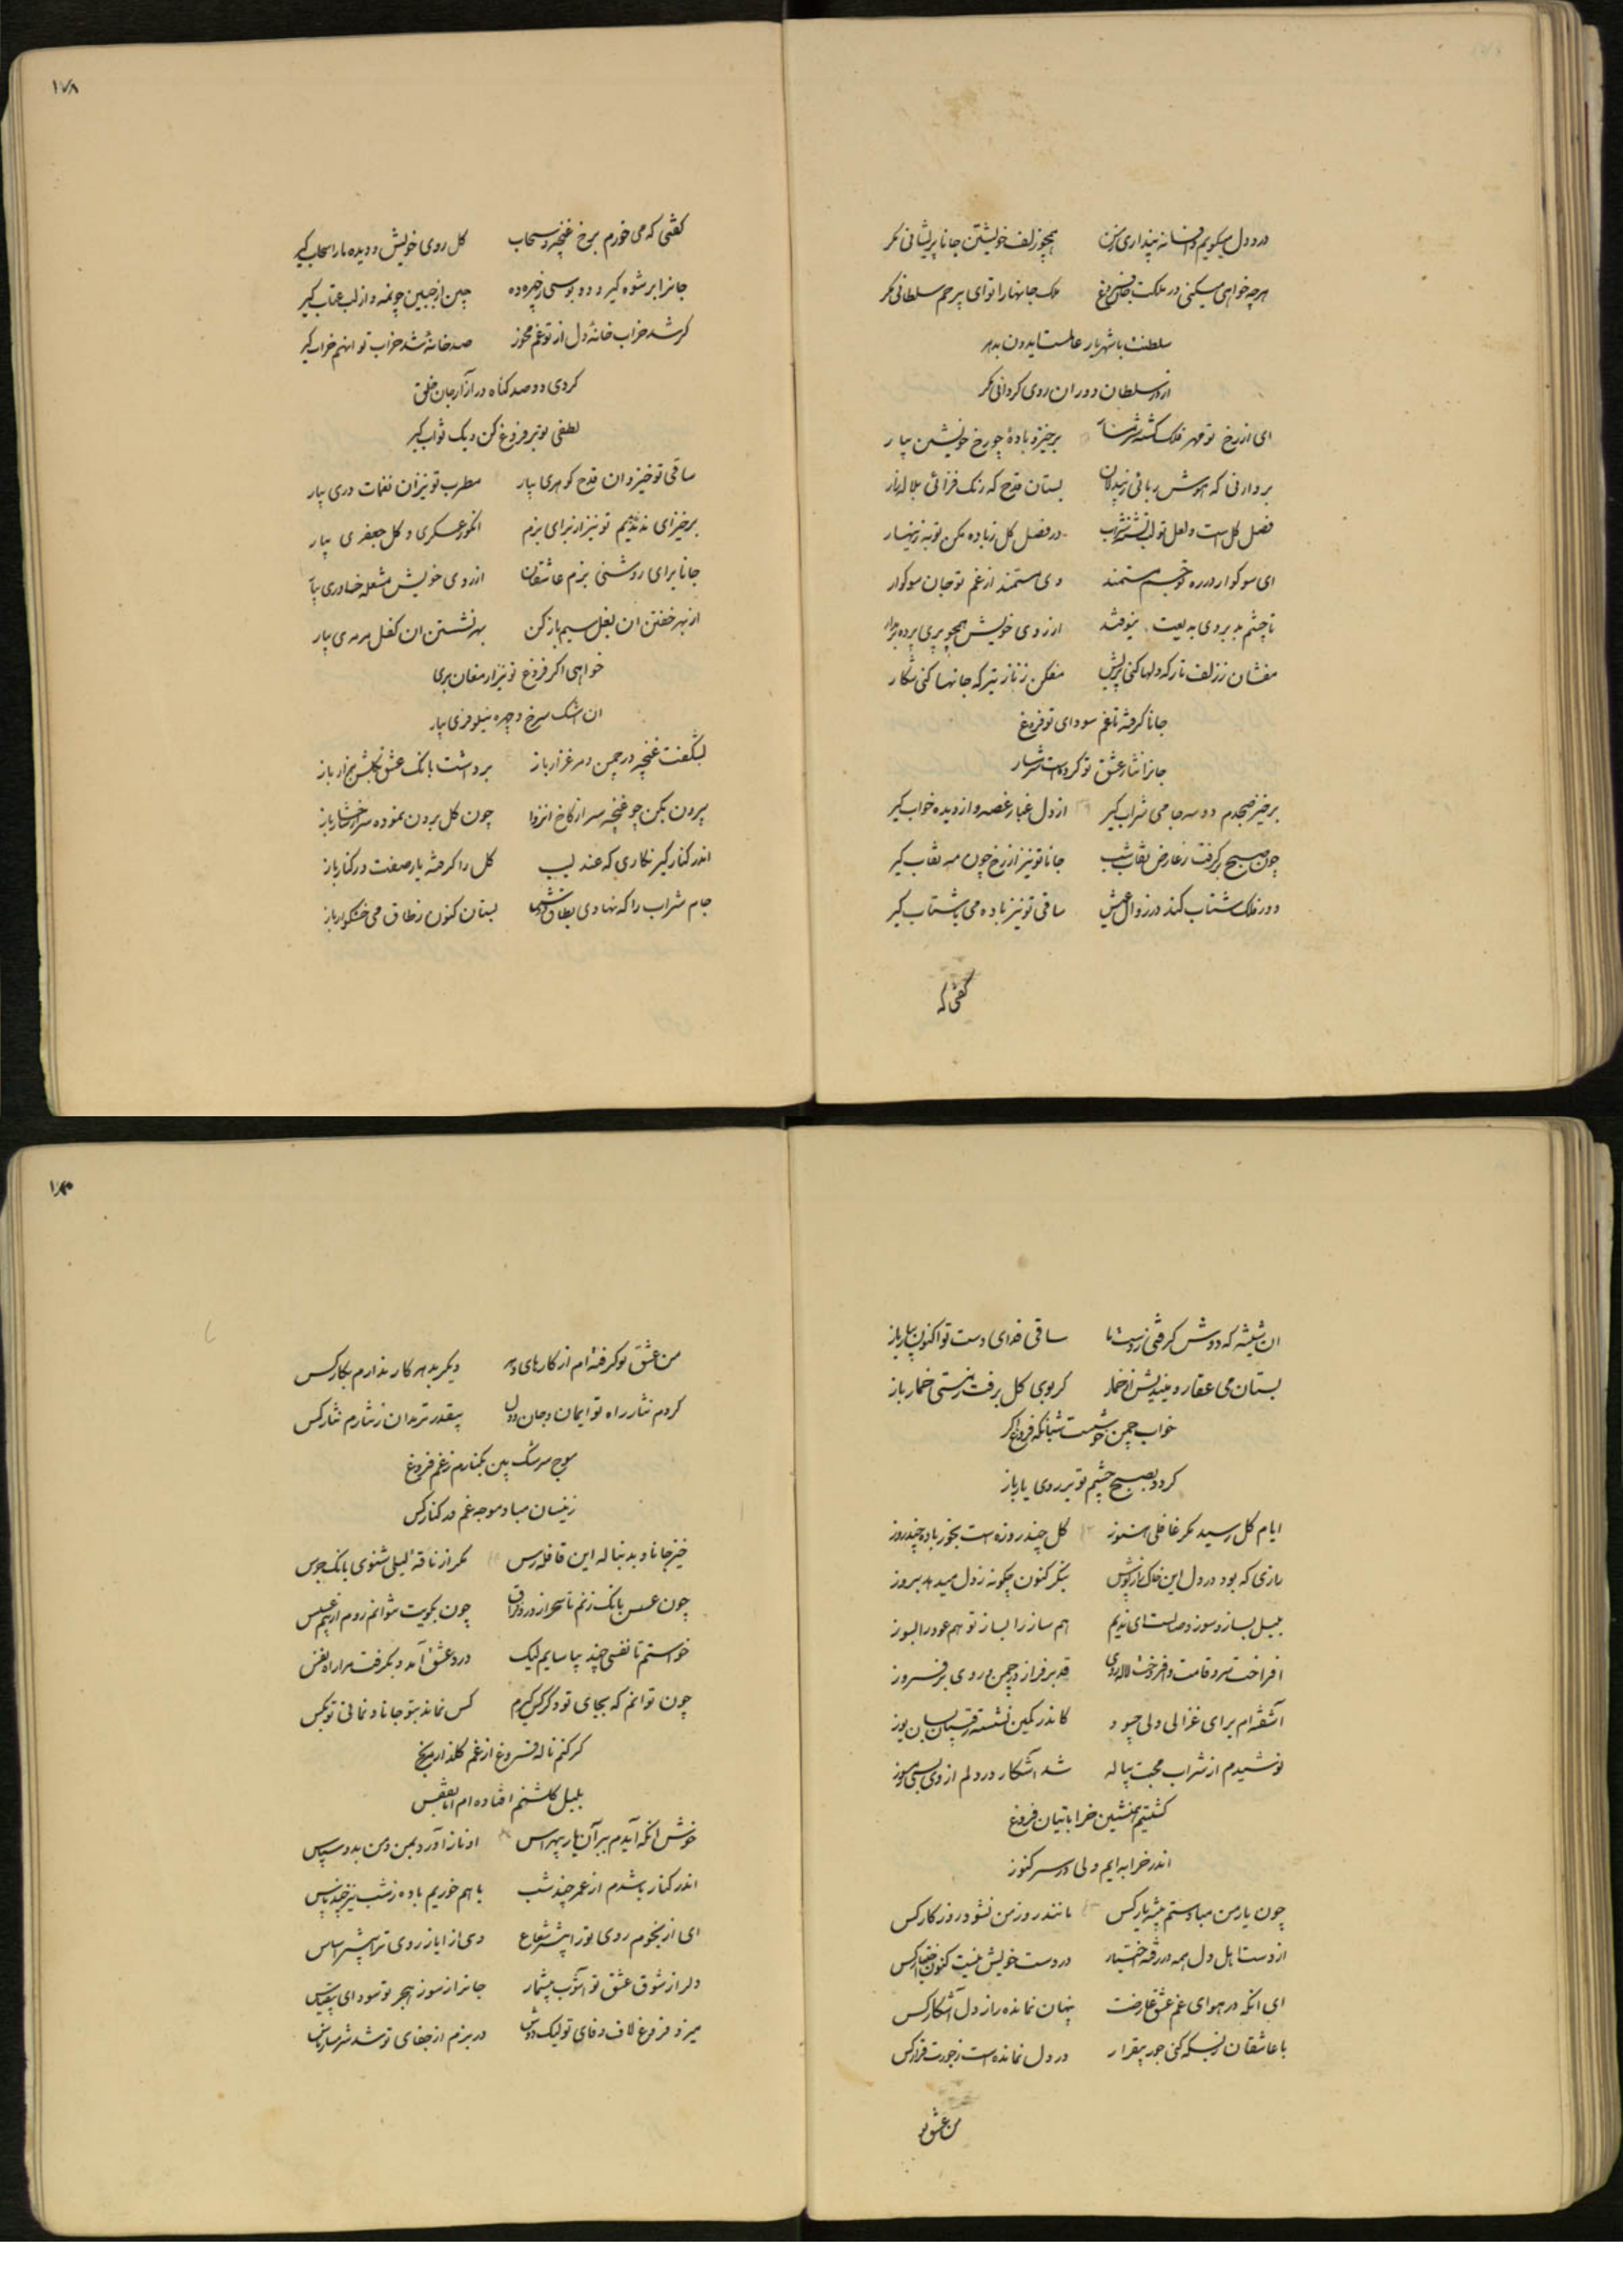 درد دل میگویم و افسانه پنداری ز من همچو زلف خویشتن جانا پریشانی مکر
هرچه خواهی میکنی در ملکت جان فروغ ملک جانها را توای بیرحم سلطانی مکر
سلطنت با شهریار عالمست ایدون بدهر
از در سلطان دوران روی گردانی مکر
ای از رخ تو مهر فلک گشته شرمسار برخیز و باده چو رخ خویشتن بیار
بستان قدح که رنک فزائی بلاله زار
فصل گل است و لعل تو لب تشنه شراب در فصل گل زباده مکن توبه زینهار
ای سوکوار در ره تو جسم مستمند وی مستمند از غم تو جان سوکوار
تا چشم بد بروی بدیعت نیوفتد از روی خویش همچو پری پرده برمدار
مفشان ز زلف تار که دلها کنی پریش مفکن ز ناز تیر که جانها کنی شکار
جانا گرفته تا غم سودای تو فروغ
جانرا نثار عشق تو کرده است شرمسار
برخیز صبحدم دو سه جامی شراب گیر از دل غبار غصه و از دیده خواب گیر
چون صبح برگرفت ز عارض نقاب شب جانا تو نیز از رخ چون مه نقاب گیر
دور فلک شتاب کند در زوال عیش ساقی تو نیز باده می با شتاب گیر
گفتی که
۱۷۸
گفتی که می خورم برخ غنچه و سحاب گل روی خویش و دیده ما را سحاب گیر
جانرا برشوه گیر و دو بوسی زچهره ده چین از جبین چو نمه و از لب عتاب گیر
گر شد خراب خانه دل از تو غم مخور صد خانه شد خراب تو اینهم خراب گیر
کردی دو صد گناه در آزار جان خلق
لطفی تو بر فروغ کن و یک ثواب گیر
ساقی تو خیز و ان قدح گوهری بیار مطرب تو نیز آن نغمات دری بیار
برخیز ای ندیم تو نیز از برای بزم انگور عسکری و گل جعفری بیار
جانا برای روشنی بزم عاشقان از روی خویش مشعله خاوری بیار
از بهر خفتن ان بغل سیم باز کن بهر نشستن ان کفل مرمری بیار
خواهی اگر فروغ تو نیز ارمغان بری
ان اشک سرخ و چهره نیلوفری بیار
بشگفت غنچه در چمن و مرغزار باز برداشت بانک عشق بگلشن هزار باز
بیرون بکن چو غنچه سر از کاخ انزوا چون گل برون نموده سر از شاخسار باز
اندر کنار گیر نگاری که عندلیب گل را گرفته یار صفت در کنار باز
جام شراب را که نهادی بطاق دوش بستان کنون ز طاق می خوشگوار باز
ان شیشه که دوش گرفتی ز دست ما ساقی فدای دست تو اکنون بیار باز
بستان می عقار و میندیش از خمار کز بوی گل برفت ز مستی خمار باز
خواب چمن خوشست شبانگه فروغ اگر
گردد بصبح چشم تو بر روی یار باز
ایام گل رسید مکر غافلی هنوز گل چند روزه است بخور باده چند روز
رازی که بود در دل این خاک راز پوش بنگر کنون چگونه ز دل میدهد بروز
بلبل بساز و سوز و صالست ای ندیم هم ساز را بساز تو هم عود را بسوز
افراخت سرو قامت و افروخت لاله روی قد برفراز در چمن و روی برفروز
آشفته ام برای غزالی ولی چسود کاندر کمین نشسته رقیبان بسان یوز
نوشیدم از شراب محبت پیاله شد اشکار درد دلم از وی بسی رموز
گشتیم همنشین خراباتیان فروغ
اندر خرابه ایم ولی در سر کنوز
چون یار من مباد ستم پیشه یار کس مانند روز من نشود روزگار کس
از دست اهل دل همه در رفته اختیار در دست خویش نیست کنون اختیار کس
ای انکه در هوای غم عشق عارضت پنهان نمانده راز دل آشکار کس
با عاشقان ز بسکه کنی جور بیقرار در دل نمانده است ز جورت قرار کس
من عشق تو
۱۸۰
من عشق تو گرفته ام از کارهای دهر دیگر بدهر کار ندارم بکار کس
کردم نثار راه تو ایمان و جان و دل بیقدر تر مدان ز نثارم نثار کس
موج سرشک بین بکنارم ز غم فروغ
زینسان مباد موجه غم در کنار کس
خیز جانا و بدنباله این قافله رس مکر از ناقه لیلی شنوی بانک جرس
چون عسس بانک زنم تا سحر از درد فراق چون بکویت نتوانم روم از بیم عسس
خواستم تا نفسی چند بیاسایم لیک درد عشق آمد و بگرفت مرا راه نفس
چون توانم که بجای تو دگر کس گیرم کس نماند بتو جانا و نمانی تو بکس
گر کنم ناله فروغ از غم گلزار مرنج
بلبل گلشنم افتاده ام اما بقفس
خوش انکه آیدم ببر آن یار بیهراس او ناز آورد بمن و من بدو سپاس
اندر کنار باشدم از عمر چند شب با هم خوریم باده ز شب نیز چند پاس
دلرا ز شوق عشق تو آشوب بیشمار جانرا ز سوز هجر تو سودای بیقیاس
میزد فروغ لاف وفای تو لیک دوش در بزم از جفای تو شد شرمسار ناس